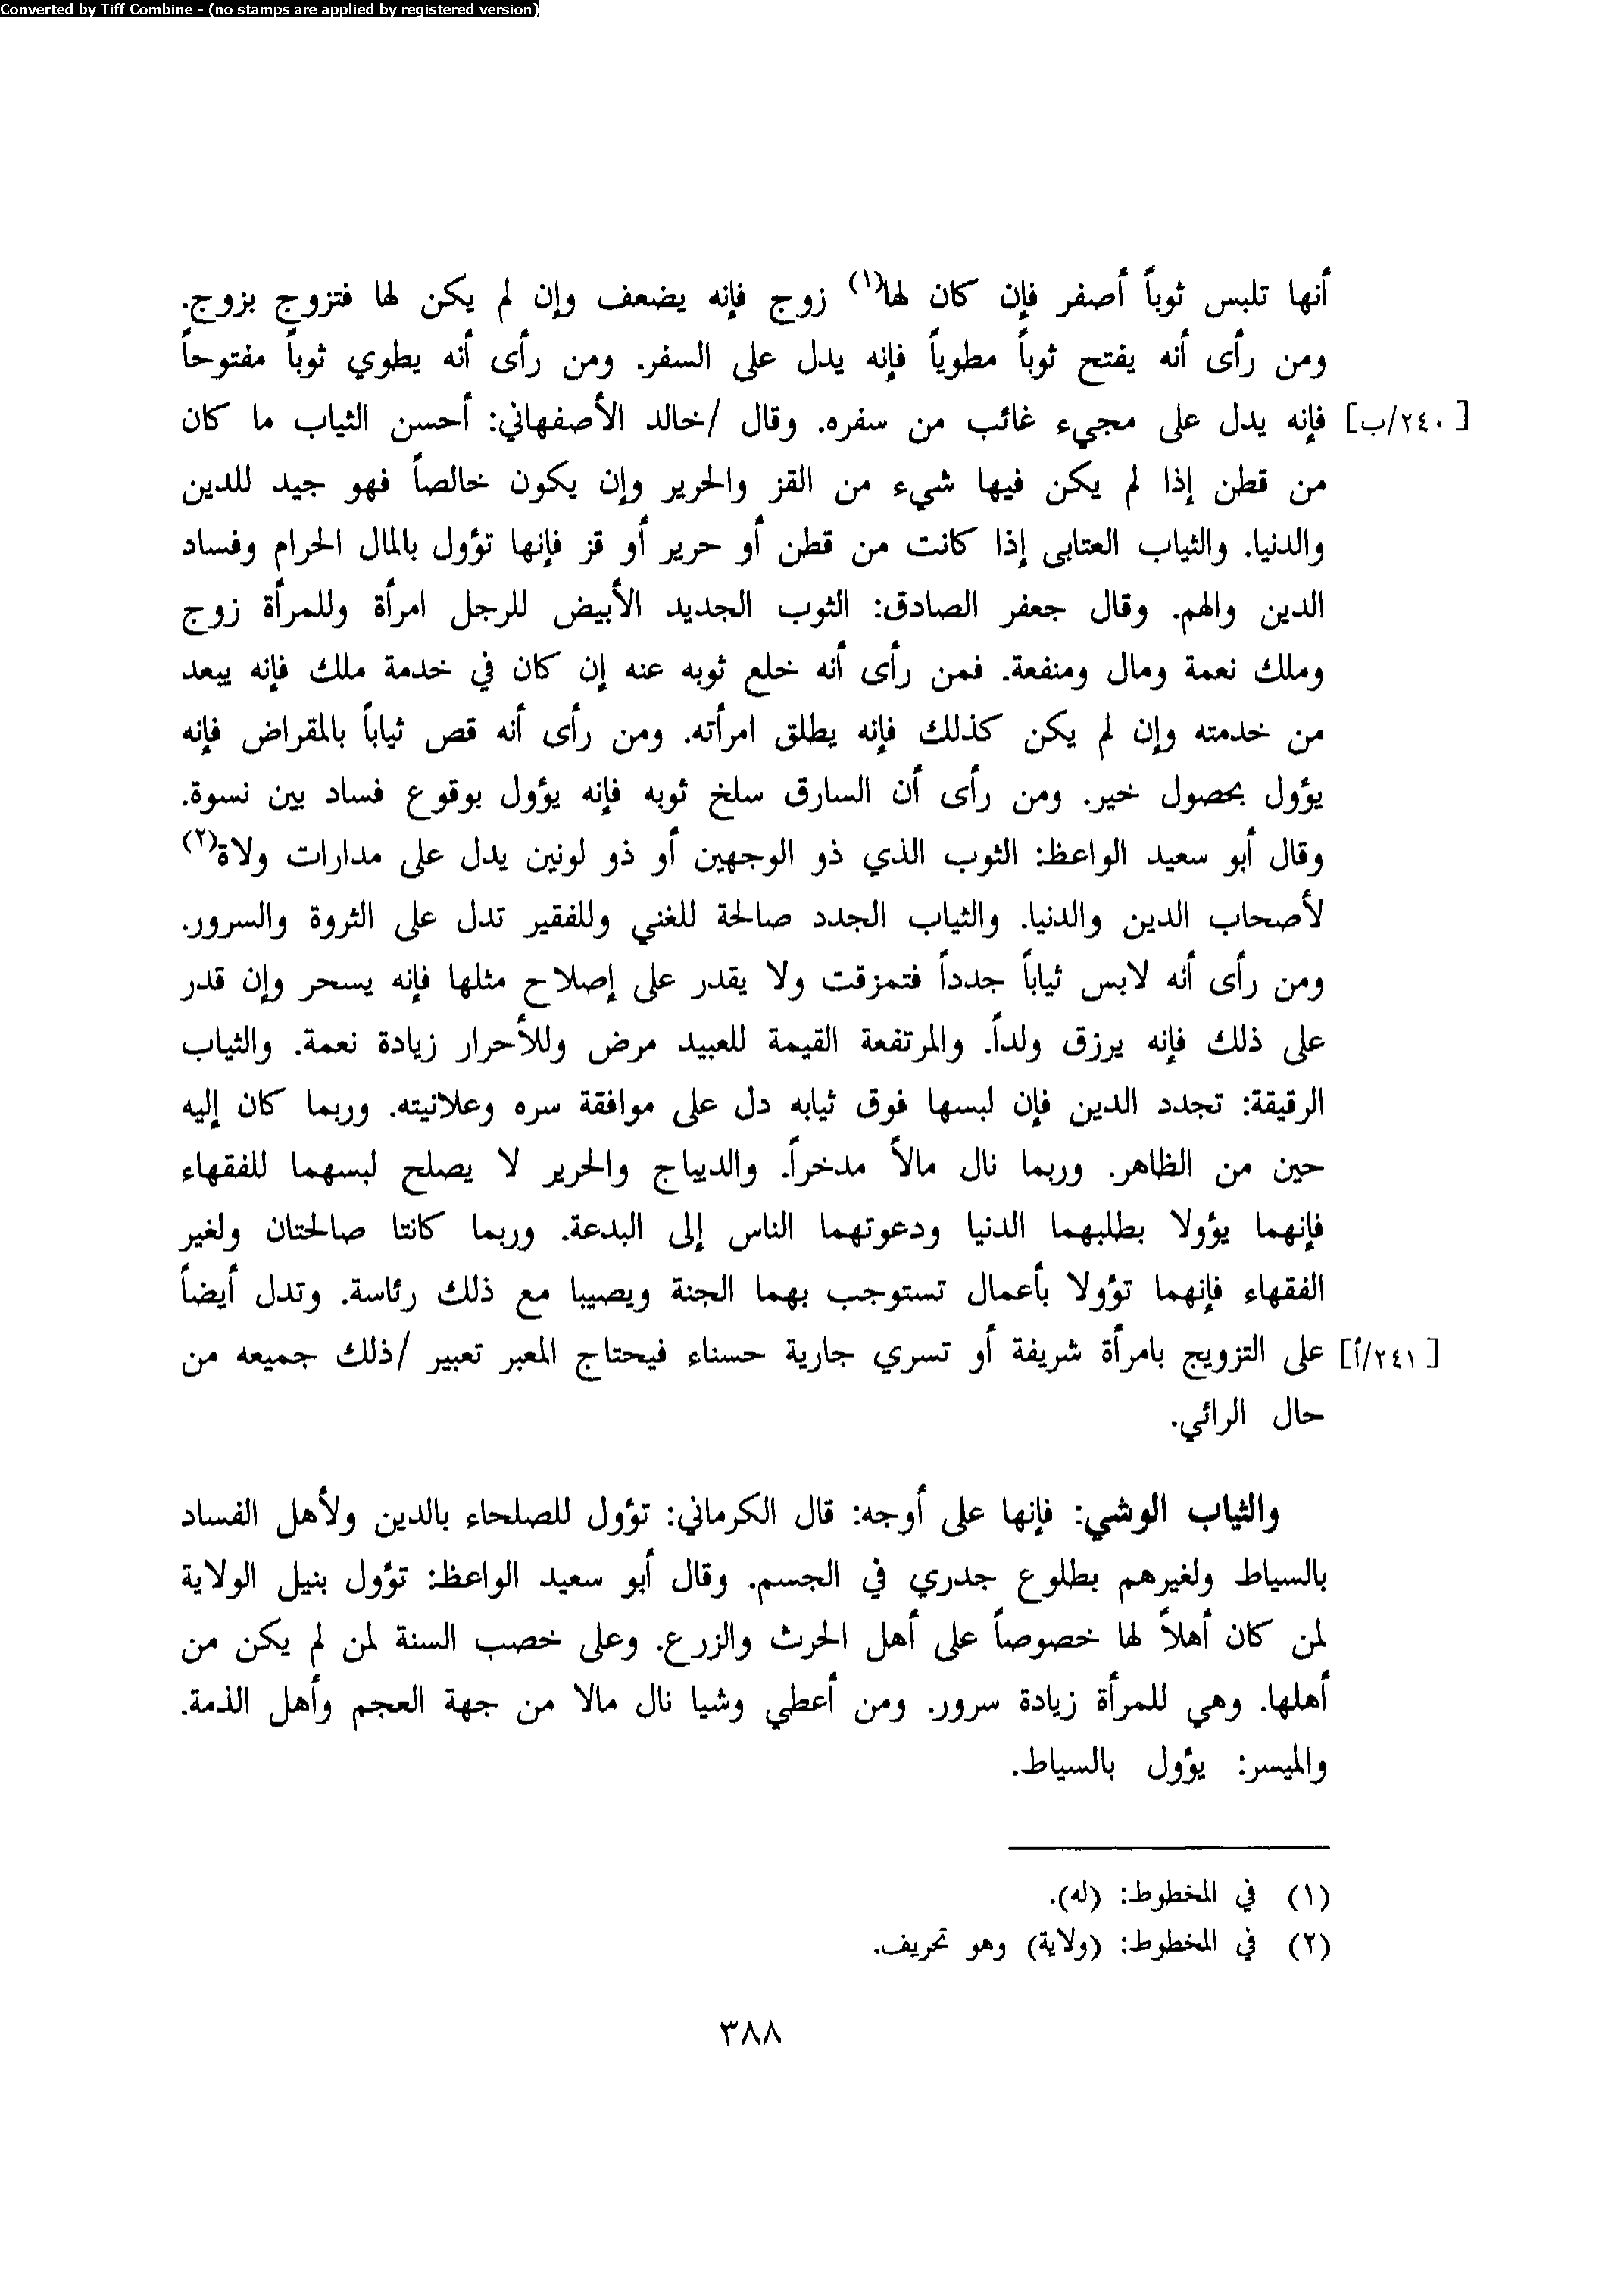 Converted by Tiff Combine - (no stamps are applied by registered version)
أنها تلبس ثوباً أصفر فإن كان لها(١) زوج فإنه يضعف وإن لم يكن لها فتزوج بزوج.
ومن رأى أنه يفتح ثوباً مطوياً فإنه يدل على السفر. ومن رأى أنه يطوي ثوباً مفتوحاً
[٢٤٠/ب] فإنه يدل على مجيء غائب من سفره. وقال /خالد الأصفهاني: أحسن الثياب ما كان
من قطن إذا لم يكن فيها شيء من القز والحرير وإن يكون خالصاً فهو جيد للدين
والدنيا. والثياب العتابى إذا كانت من قطن أو حرير أو قز فإنها تؤول بالمال الحرام وفساد
الدين والهم. وقال جعفر الصادق: الثوب الجديد الأبيض للرجل امرأة وللمرأة زوج
وملك نعمة ومال ومنفعة. فمن رأى أنه خلع ثوبه عنه إن كان في خدمة ملك فإنه يبعد
من خدمته وإن لم يكن كذلك فإنه يطلق امرأته. ومن رأى أنه قص ثياباً بالمقراض فإنه
يؤول بحصول خير. ومن رأى أن السارق سلخ ثوبه فإنه يؤول بوقوع فساد بين نسوة.
وقال أبو سعيد الواعظ: الثوب الذي ذو الوجهين أو ذو لونين يدل على مدارات ولاة(٢)
لأصحاب الدين والدنيا. والثياب الجدد صالحة للغني وللفقير تدل على الثروة والسرور.
ومن رأى أنه لابس ثياباً جدداً فتمزقت ولا يقدر على إصلاح مثلها فإنه يسحر وإن قدر
على ذلك فإنه يرزق ولداً. والمرتفعة القيمة للعبيد مرض وللأحرار زيادة نعمة. والثياب
الرقيقة: تجدد الدين فإن لبسها فوق ثيابه دل على موافقة سره وعلانيته. وربما كان إليه
حين من الظاهر. وربما نال مالاً مدخراً. والديباج والحرير لا يصلح لبسهما للفقهاء
فإنهما يؤولا بطلبهما الدنيا ودعوتهما الناس إلى البدعة. وربما كانتا صالحتان ولغير
الفقهاء فإنهما تؤولا بأعمال تستوجب بهما الجنة ويصيبا مع ذلك رئاسة. وتدل أيضاً
[٢٤١/أ] على التزويج بامرأة شريفة أو تسري جارية حسناء فيحتاج المعبر تعبير /ذلك جميعه من
حال الرائي.
والثياب الوشي: فإنها على أوجه: قال الكرماني: تؤول للصلحاء بالدين ولأهل الفساد
بالسياط ولغيرهم بطلوع جدري في الجسم. وقال أبو سعيد الواعظ: تؤول بنيل الولاية
لمن كان أهلاً لها خصوصاً على أهل الحرث والزرع. وعلى خصب السنة لمن لم يكن من
أهلها. وهي للمرأة زيادة سرور. ومن أعطي وشيا نال مالا من جهة العجم وأهل الذمة.
والميسر: يؤول بالسياط.
(١) في المخطوط: (له).
(٢) في المخطوط: (ولاية) وهو تحريف.
٣٨٨